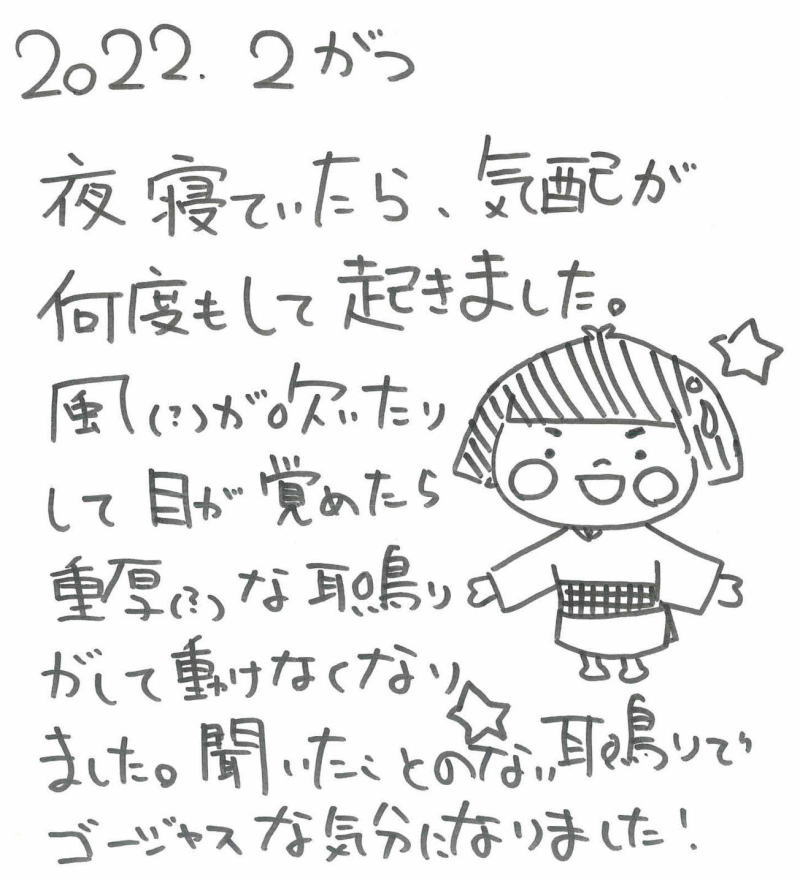 2022. 2がつ
夜寝ていたら、気配が
何度もして起きました。
風(?)が吹いたり
して目が覚めたら
重厚(?)な耳鳴り
がして動けなくなり
ました。聞いたことのない耳鳴りで
ゴージャスな気分になりました!